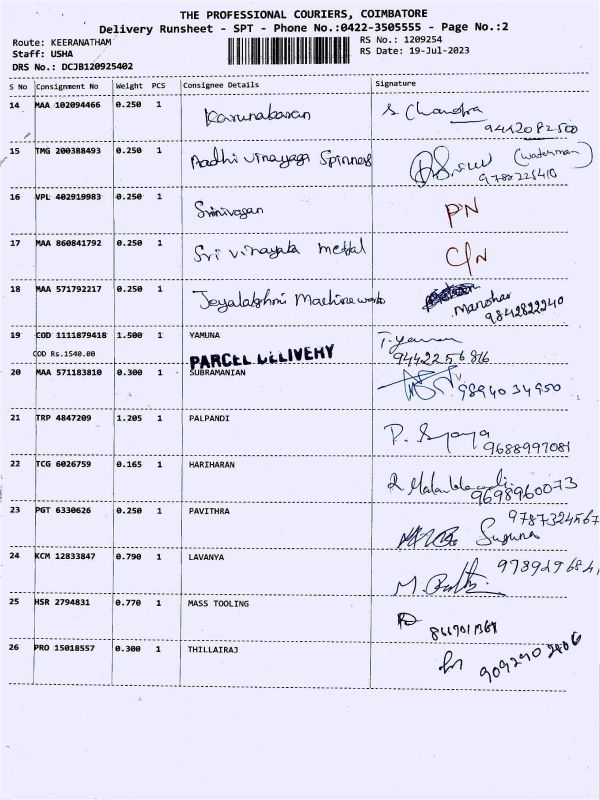 THE PROFESSIONAL COURIERS, COIMBATORE
Delivery Runsheet - SPT - Phone No.:0422-3505555 - Page No.:2
Route: KEERANATHAM RS No.: 1209254
Staff: USHA RS Date: 19-Jul-2023
DRS No.: DCJB120925402
S No Consignment No Weight PCS Consignee Details Signature
14 MAA 102094466 0.250 1 Karunakaran S. Chandra
9442082500
15 TMG 200388493 0.250 1 Aadhi vinayaga Spinners (watchman)
9788225410
16 VPL 402919983 0.250 1 Srinivasan PN
17 MAA 860841792 0.250 1 Sri vinayaka mettal C/N
18 MAA 571792217 0.250 1 Jeyalakshmi Machine works Manohar
9842822240
19 COD 1111879418 1.500 1 YAMUNA
COD Rs.1540.00 PARCEL DELIVERY 9442256816
20 MAA 571183810 0.300 1 SUBRAMANIAN 9894034950
21 TRP 4847209 1.205 1 PALPANDI
9688997081
22 TCG 6026759 0.165 1 HARIHARAN
9698960073
23 PGT 6330626 0.250 1 PAVITHRA 9787324567
Suguna
24 KCM 12833847 0.790 1 LAVANYA
25 HSR 2794831 0.770 1 MASS TOOLING
26 PRO 15018557 0.300 1 THILLAIRAJ